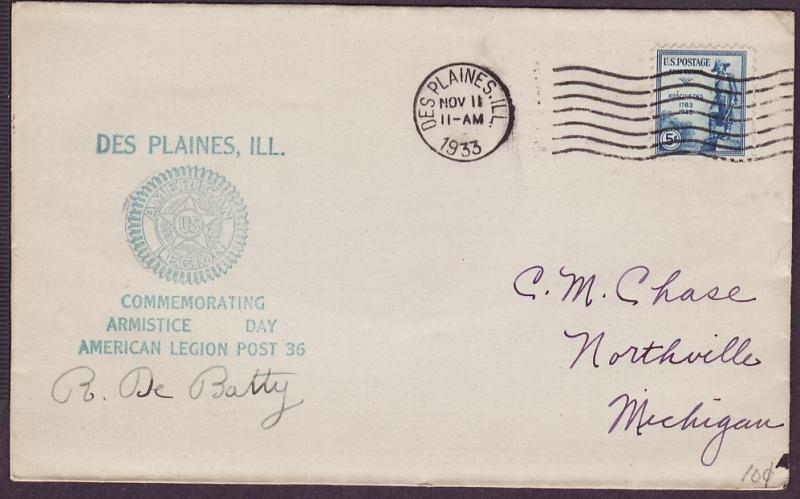 DES PLAINES, ILL.
NOV 11
11-AM
1933
U.S. POSTAGE
KOSCIUSZKO
1783
5¢
DES PLAINES, ILL.
AMERICAN
US
LEGION
COMMEMORATING
ARMISTICE DAY
AMERICAN LEGION POST 36
R. De Batty
C. M. Chase
Northville
Michigan
10¢